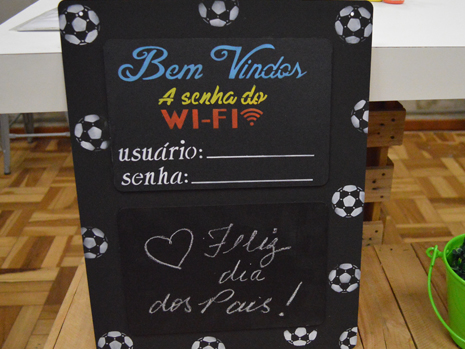 Bem Vindos
A senha do
WI-FI
usuário:
senha:
Feliz
dia
dos Pais!